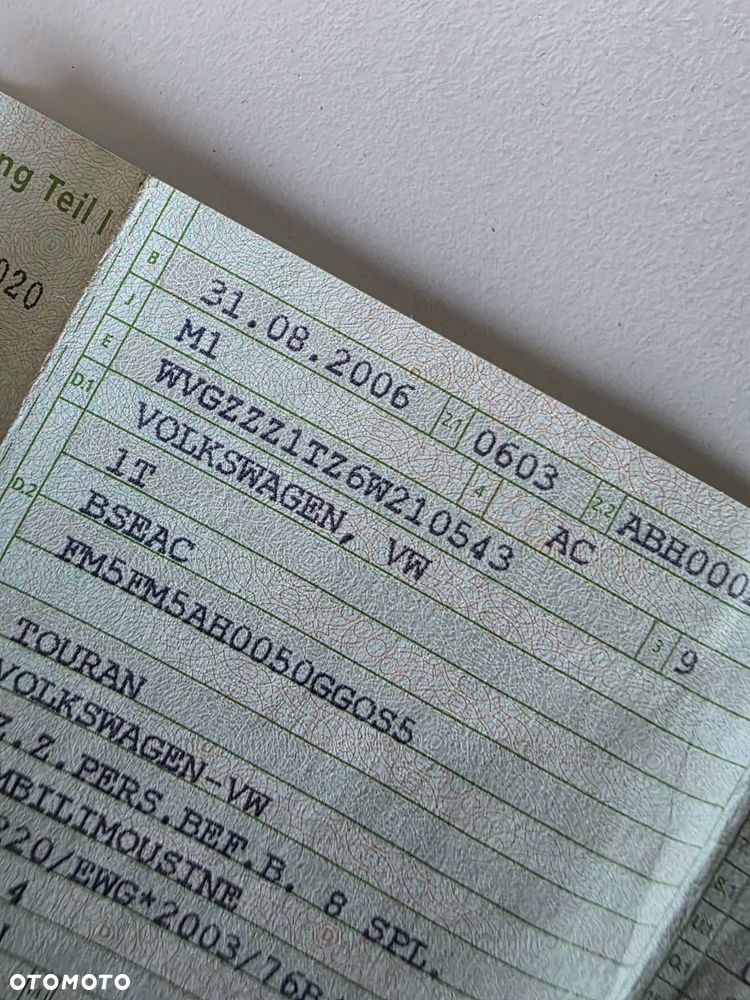 ng Teil I
020
B 31.08.2006 2.1 0603 2.2 ABH000
J M1 4 AC
E WVGZZZ1TZ6W210543 3 9
D.1 VOLKSWAGEN, VW
D.2 1T
BSEAC
FM5FM5AH0050GGOS5
TOURAN
VOLKSWAGEN-VW
Z.Z.PERS.BEF.B. 8 SPL.
MBILIMOUSINE
220/EWG*2003/76B
4
OTOMOTO